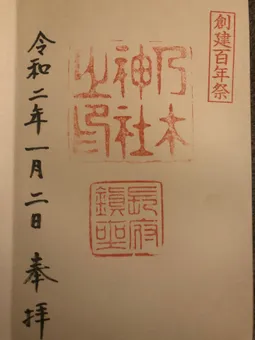 創建百年祭
乃木
神社
之印
長府
鎮坐
令和二年一月二日 奉拝